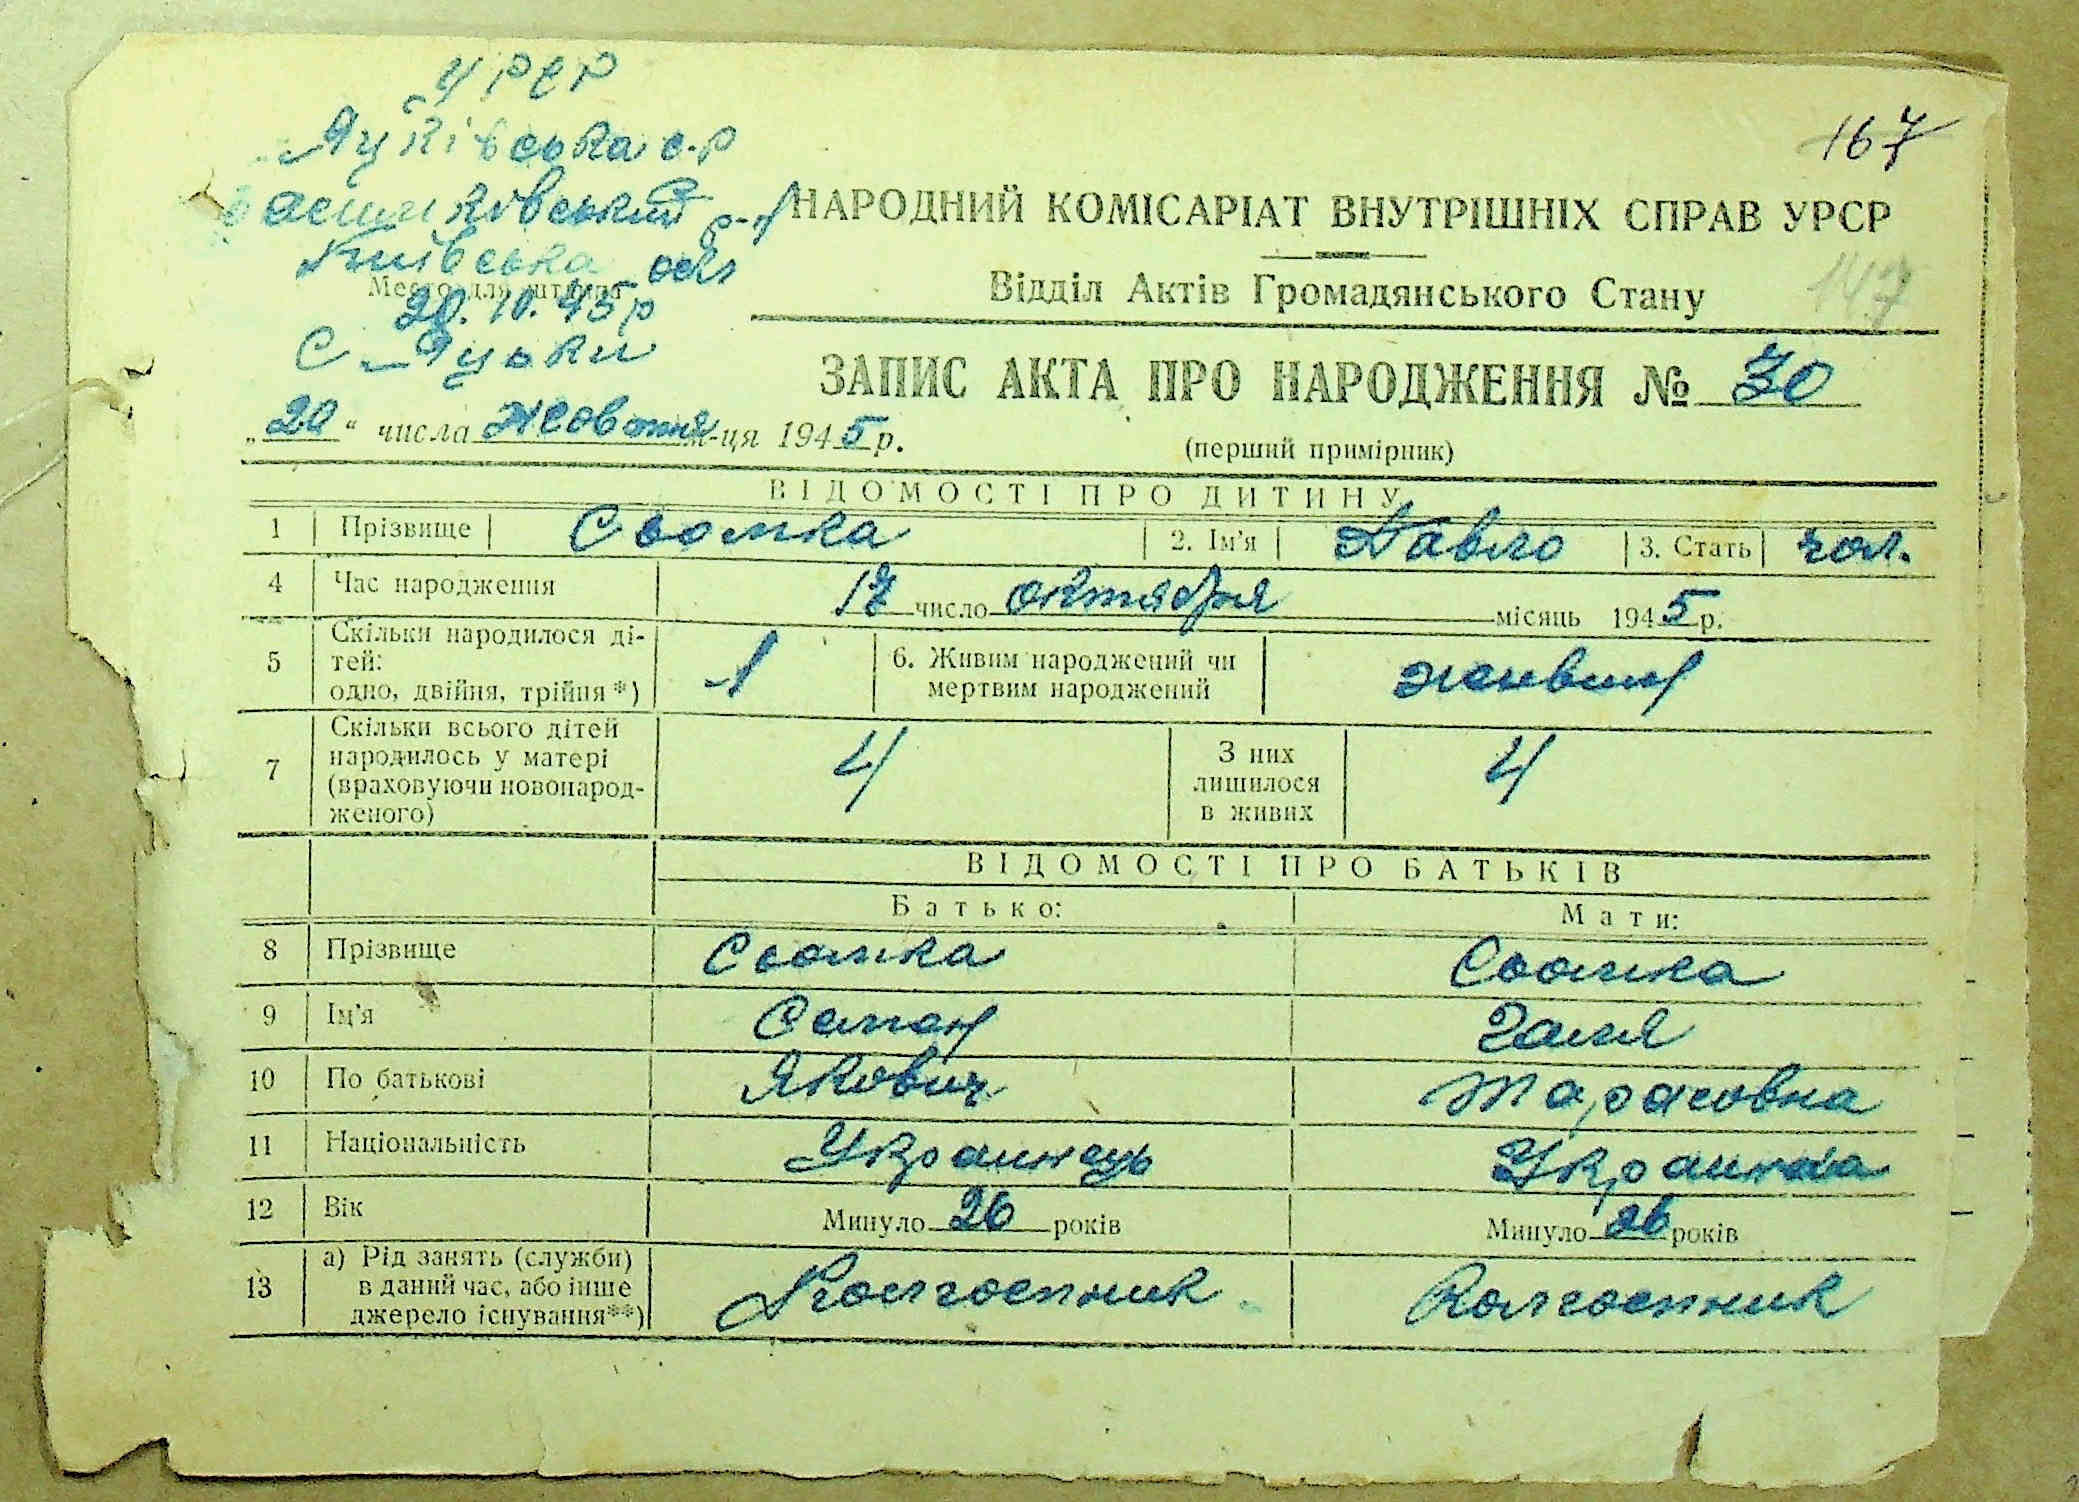 УРСР
Яцківська с-р
Васильківський р-н
Київська обл
Место для штампа
20.10.45 р
С Яцьки
167
147
НАРОДНИЙ КОМІСАРІАТ ВНУТРІШНІХ СПРАВ УРСР
Відділ Актів Громадянського Стану
ЗАПИС АКТА ПРО НАРОДЖЕННЯ № 30
„20“ числа жовтня м-ця 1945 р.
(перший примірник)
ВІДОМОСТІ ПРО ДИТИНУ
1 Прізвище Сьомка 2. Ім'я Павло 3. Стать чол.
4 Час народження 17 число октября місяць 1945 р.
5 Скільки народилося ді-
тей:
одно, двійня, трійня*) 1
6. Живим народжений чи
мертвим народжений живим
7 Скільки всього дітей
народилось у матері
(враховуючи новонарод-
женого) 4
З них
лишилося
в живих 4
ВІДОМОСТІ ПРО БАТЬКІВ
Батько: Мати:
8 Прізвище Сьомка Сьомка
9 Ім'я Семен Галя
10 По батькові Якович Тарасовна
11 Національність Украинець Украинка
12 Вік Минуло 26 років Минуло 26 років
13 а) Рід занять (служби)
в даний час, або інше
джерело існування**) Колгоспник Колгоспник